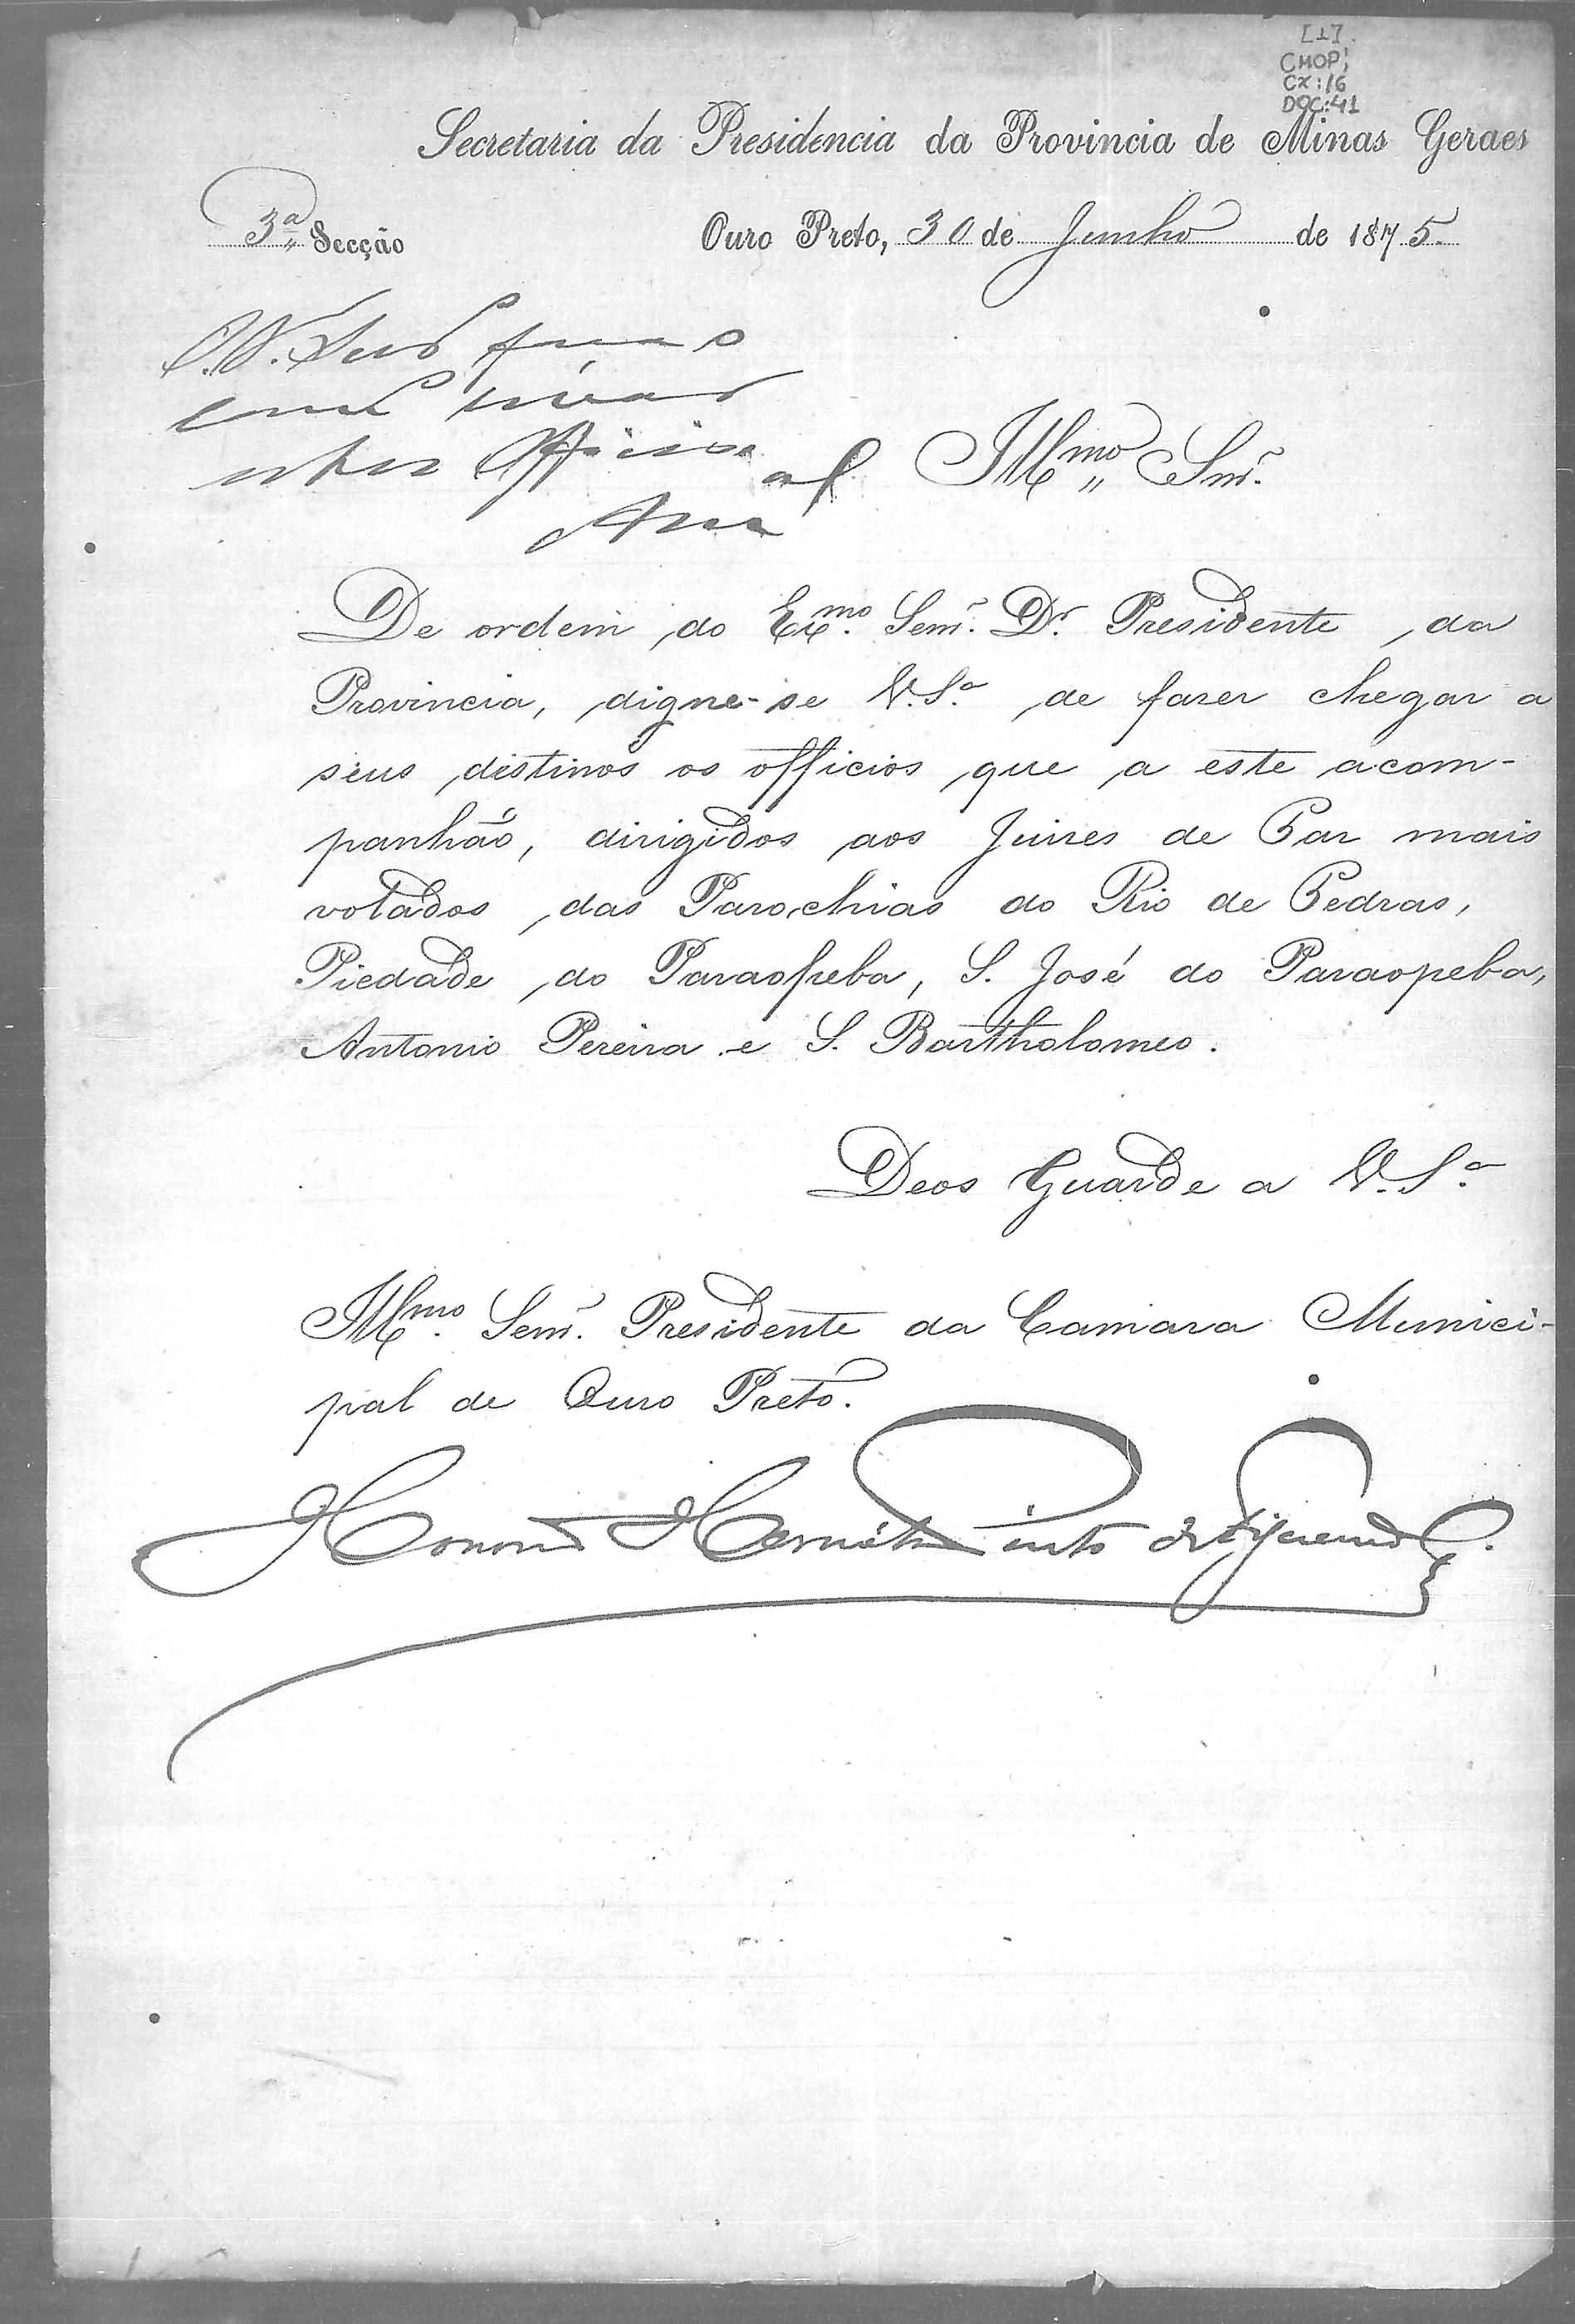 [1].
CMOP;
CX:16
DOC:41
Secretaria da Presidencia da Provincia de Minas Geraes
3ª Secção
Ouro Preto, 30 de Junho de 1875.
Illmo Snr.
De ordem do Exmo. Senr. Dr. Presidente da
Provincia, digne-se V.Sª de fazer chegar a
seus distinos os officios que a este acom-
panhão, dirigidos aos Juizes de Paz mais
votados das Parochias do Rio de Pedras,
Piedade do Paraopeba, S. José do Paraopeba,
Antonio Pereira e S. Bartholomeo.
Deos Guarde a V.Sª
Illmo. Senr. Presidente da Camara Munici-
pal de Ouro Preto.
Pinto de